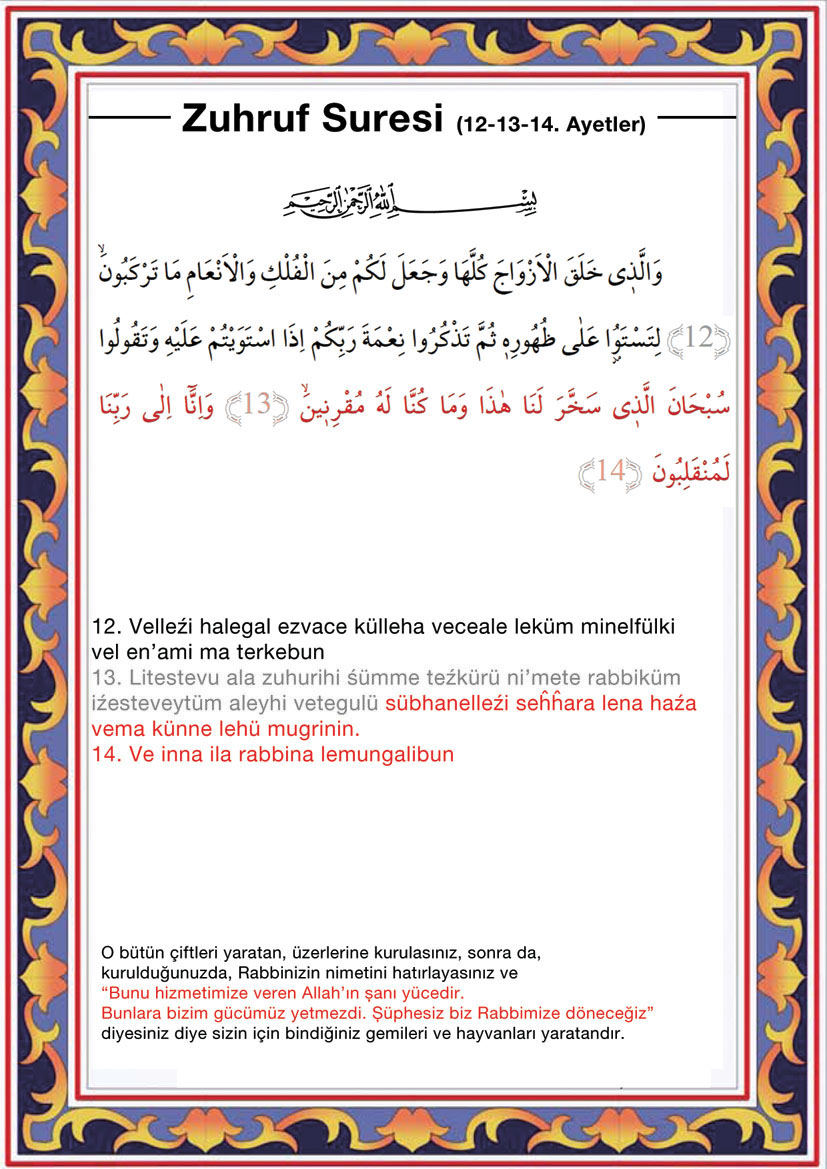 Zuhruf Suresi (12-13-14. Ayetler)
بِسْمِ اللّٰهِ الرَّحْمٰنِ الرَّحِيمِ
وَالَّذ۪ى خَلَقَ الْاَزْوَاجَ كُلَّهَا وَجَعَلَ لَكُمْ مِنَ الْفُلْكِ وَالْاَنْعَامِ مَا تَرْكَبُونَۙ
﴿12﴾ لِتَسْتَوُ۫ا عَلٰى ظُهُورِه۪ ثُمَّ تَذْكُرُوا نِعْمَةَ رَبِّكُمْ اِذَا اسْتَوَيْتُمْ عَلَيْهِ وَتَقُولُوا
سُبْحَانَ الَّذ۪ى سَخَّرَ لَنَا هٰذَا وَمَا كُنَّا لَهُ مُقْرِن۪ينَۙ ﴿13﴾ وَاِنَّٓا اِلٰى رَبِّنَا
لَمُنْقَلِبُونَ ﴿14﴾
12. Velleźi halegal ezvace külleha veceale leküm minelfülki
vel en’ami ma terkebun
13. Litestevu ala zuhurihi śümme teźkürü ni’mete rabbiküm
iźesteveytüm aleyhi vetegulü sübhanelleźi seĥĥara lena haźa
vema künne lehü mugrinin.
14. Ve inna ila rabbina lemungalibun
O bütün çiftleri yaratan, üzerlerine kurulasınız, sonra da,
kurulduğunuzda, Rabbinizin nimetini hatırlayasınız ve
“Bunu hizmetimize veren Allah’ın şanı yücedir.
Bunlara bizim gücümüz yetmezdi. Şüphesiz biz Rabbimize döneceğiz”
diyesiniz diye sizin için bindiğiniz gemileri ve hayvanları yaratandır.